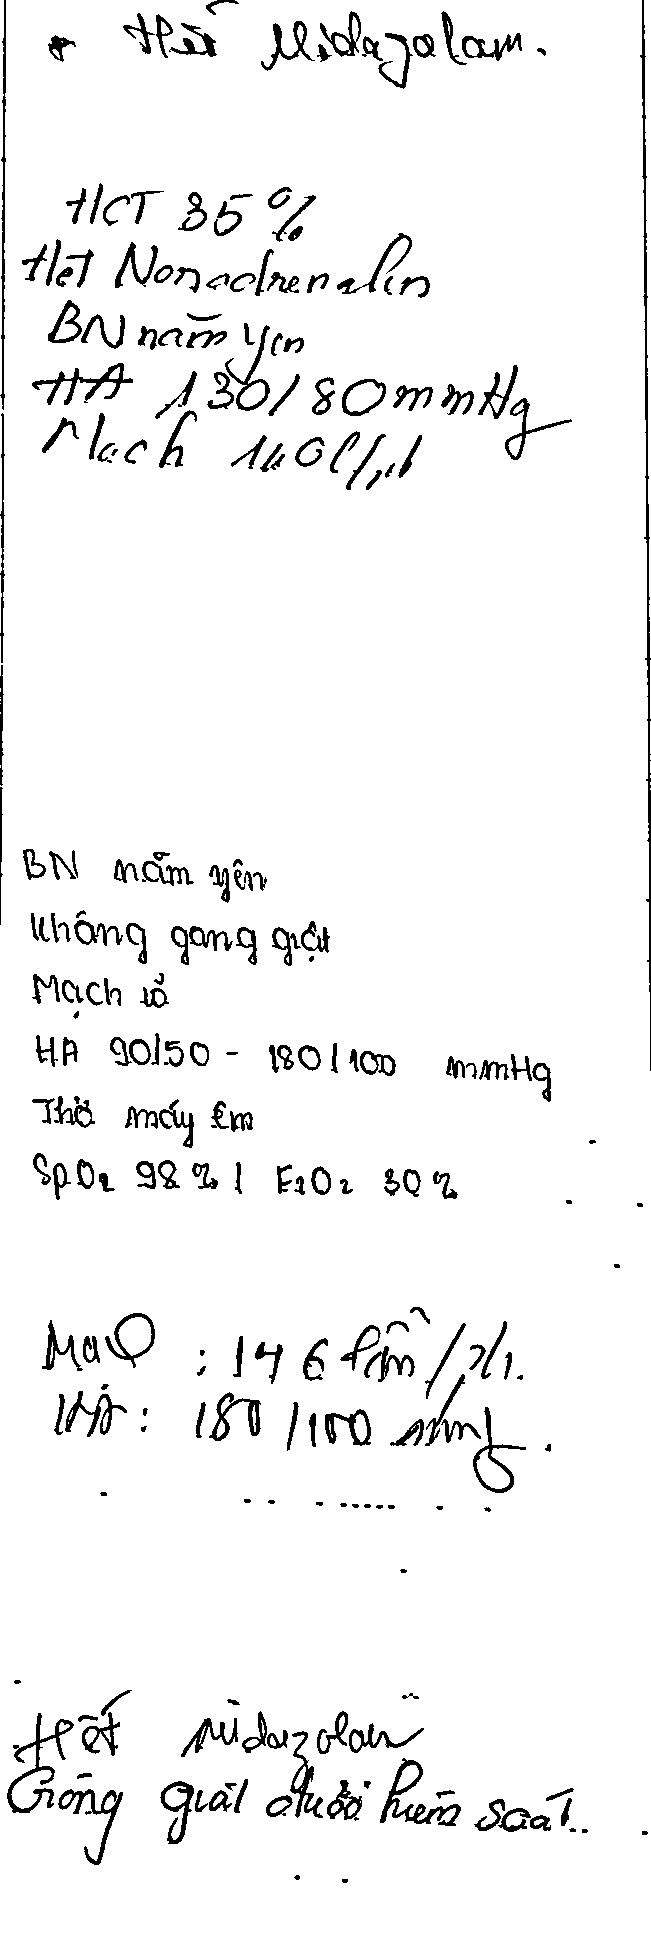 * Hết Midazolam.
HCT 35%
Hết Noradrenalin
BN nằm yên
HA 130/80mmHg
Mạch 140l/ph
BN nằm yên
Không gồng giật
Mạch rõ
HA 90/50 - 180/100 mmHg
Thở máy êm
SpO2 98% / FiO2 30%
Mạch : 146 lần/ph.
HA: 180/100 mmHg.
Hết midazolam
Gồng giật được kiểm soát.